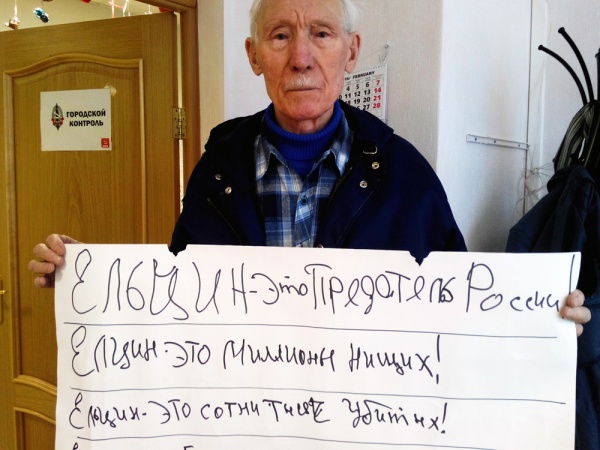 ГОРОДСКОЙ
КОНТРОЛЬ
FEBRUARY
7
14
21
28
ЕЛЬЦИН-это Предатель России!
Елцин-это миллионы нищих!
Ельцин-это сотни тысяч убитых!